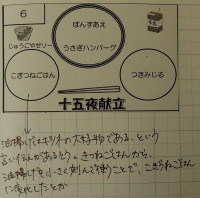 6
ぽんずあえ
じゅうごやゼリー
うさぎハンバーグ
こぎつねごはん
つきみじる
十五夜献立
油揚げはキツネの大好物である、という
言い伝えがあるそう。きつねごはんから、
油揚げを小さく刻んで使うことで、こぎつねごはん
に変化したとか